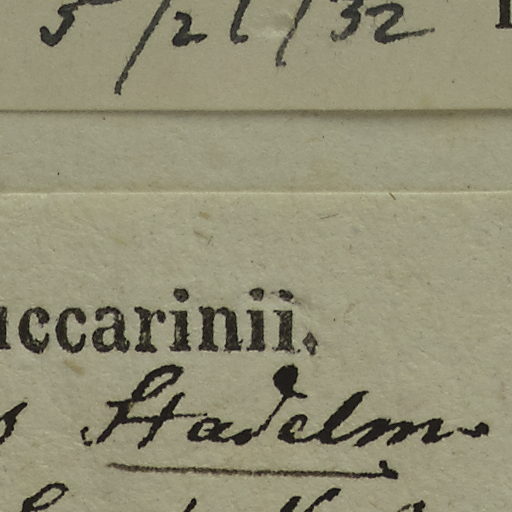 5/26/32
uccarinii.
s Stadelm.